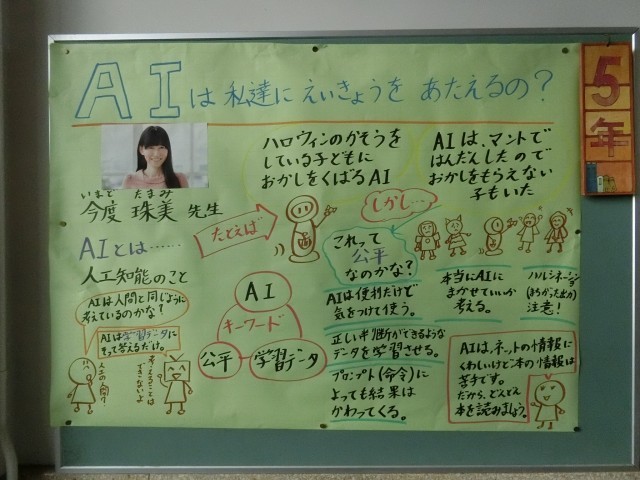 AIは私達にえいきょうをあたえるの?
5年
いまど たまみ
今度 珠美 先生
AIとは……
人工知能のこと
AIは人間と同じように
考えているのかな?
AIは学習データに
そって答えるだけ。
人工の人間?
考えることは
できないよ
ハロウィンのかそうを
している子どもに
おかしをくばるAI
たとえば
しかし…
AIは、マントで
はんだんしたので
おかしをもらえない
子もいた
AI
キーワード
公平
学習データ
これって
公平
なのかな?
AIは便利だけど
気をつけて使う。
正しい判断ができるような
データを学習させる。
プロンプト(命令)に
よっても結果は
かわってくる。
本当にAIに
まかせていいか
考える。
ハルシネーション
注意!
AIは、ネットの情報に
くわしいけど本の情報は
苦手です。
だから、どんどん
本を読みましょう。